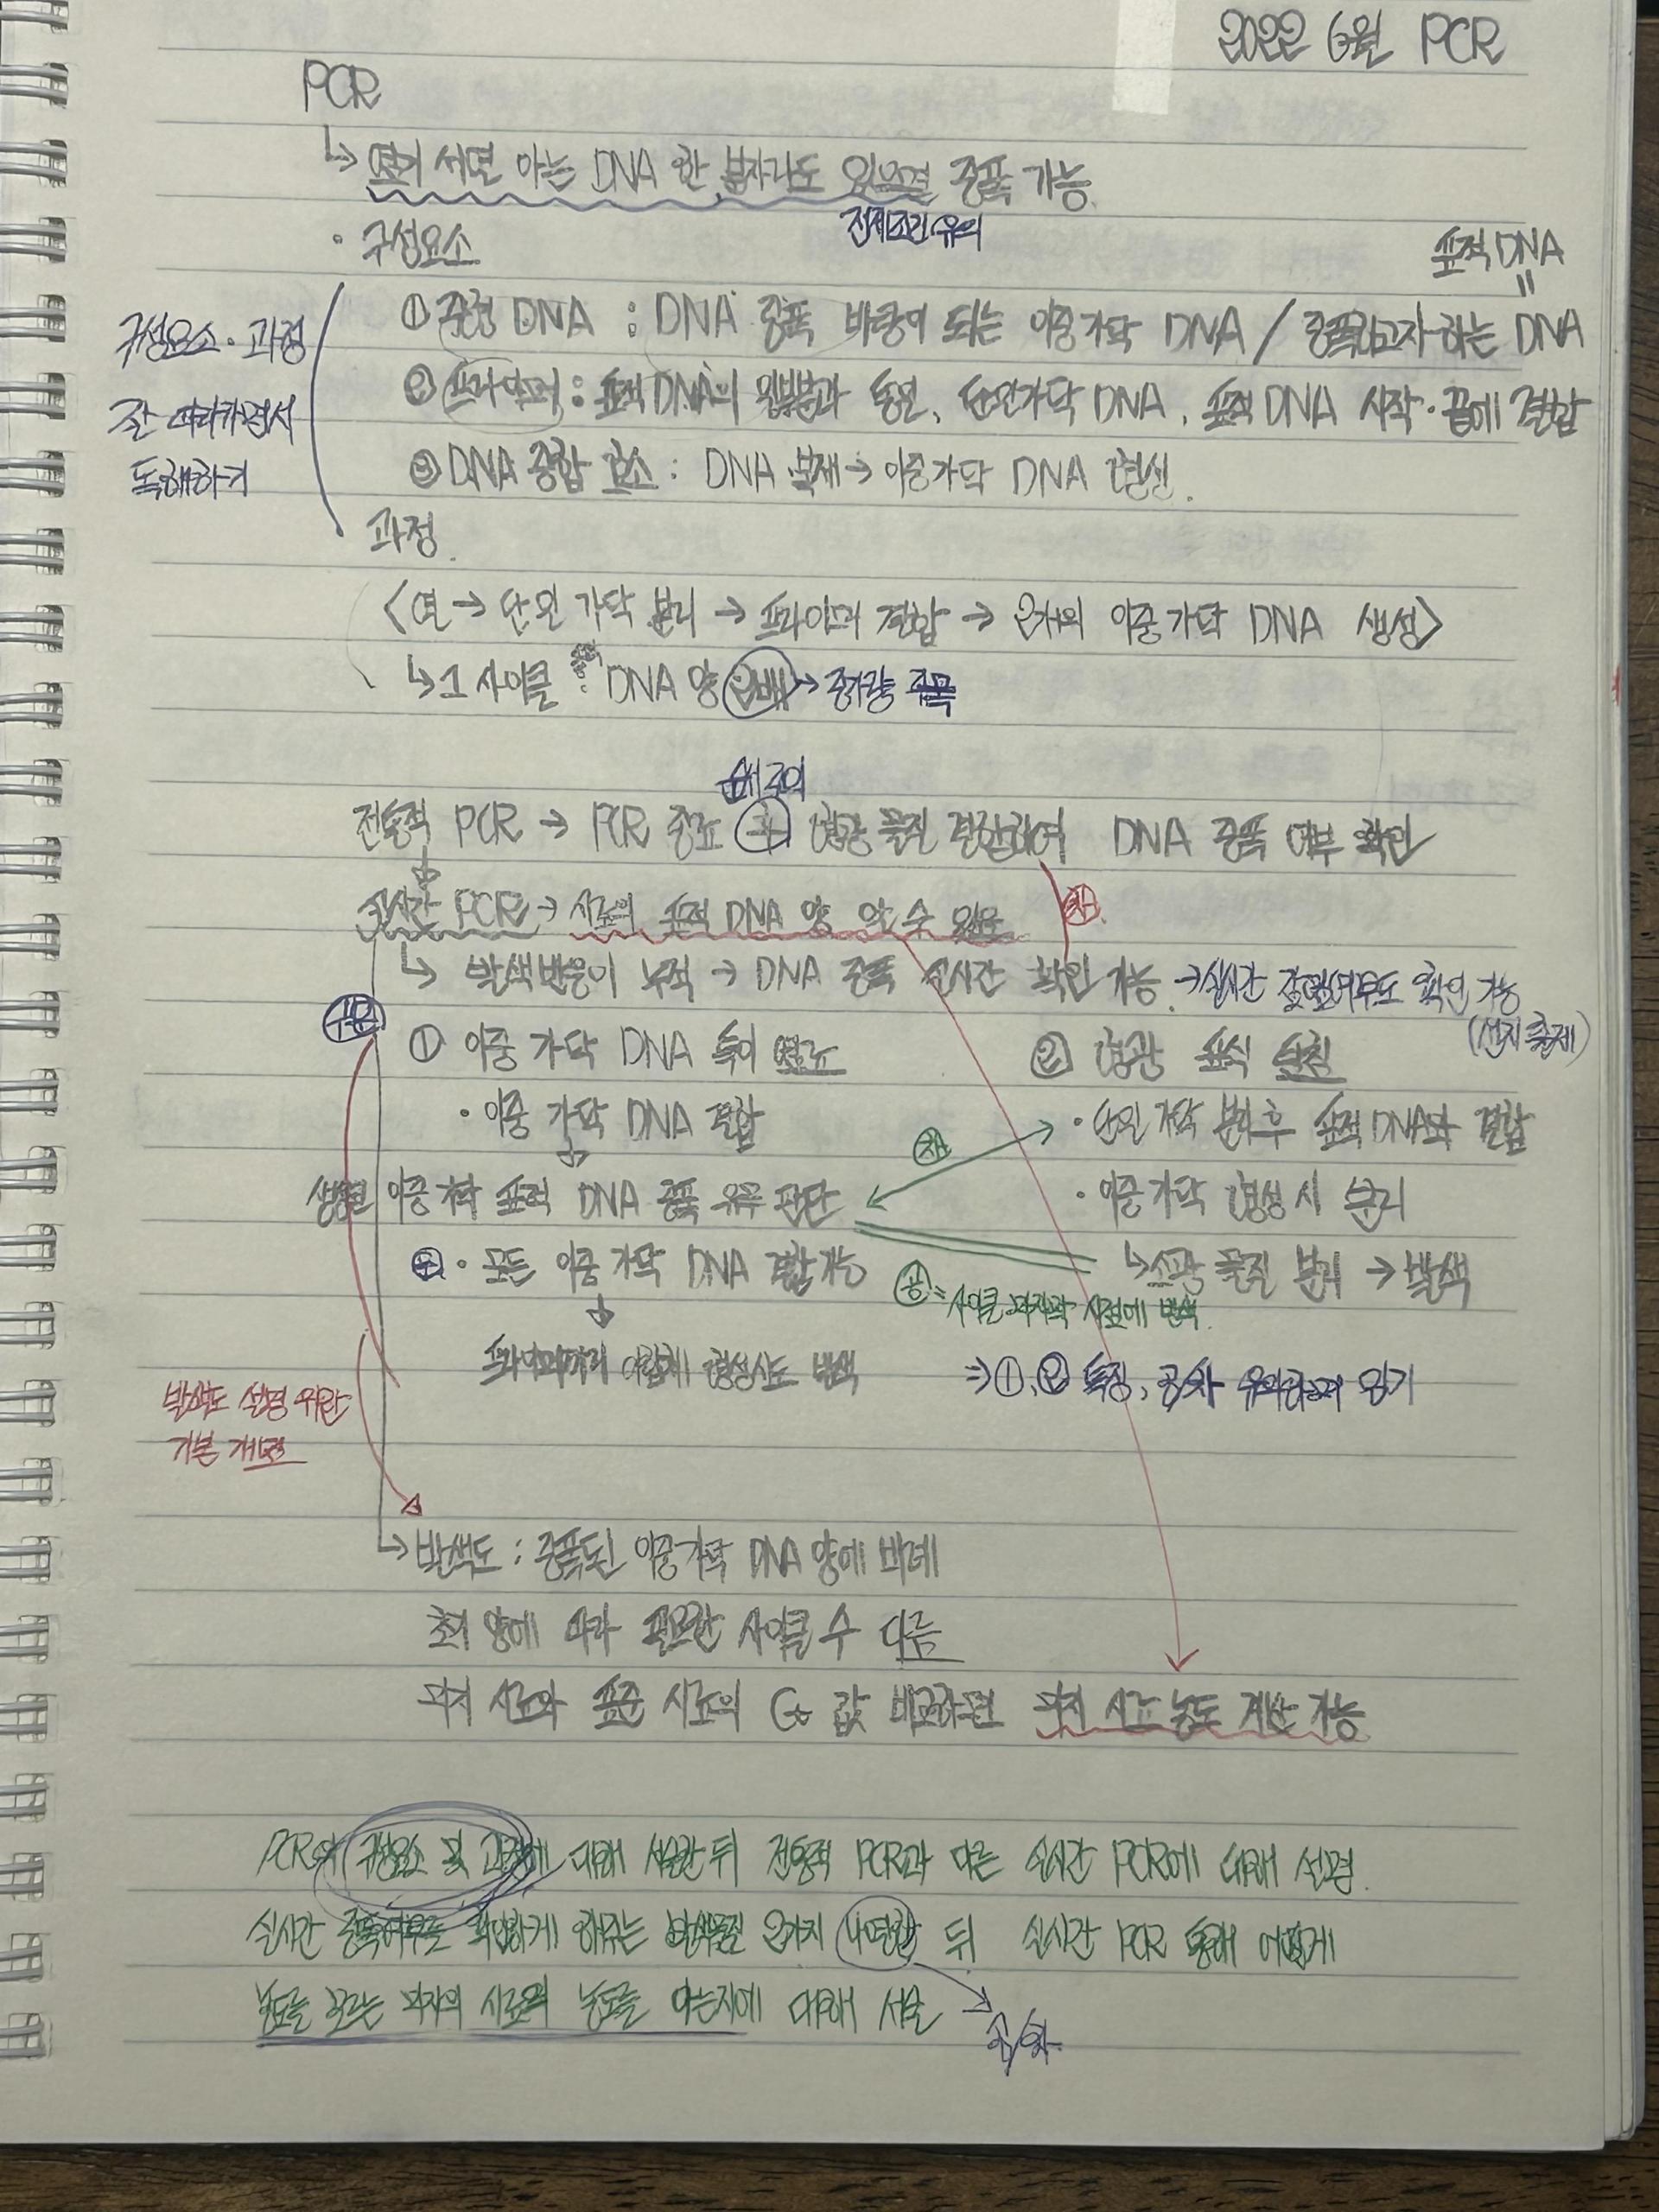 2022 6월 PCR
PCR
↳ 염기 서열 아는 DNA 한 분자라도 있으면 증폭 가능
전제조건 유의
· 구성요소
표적 DNA
=
① 주형 DNA : DNA 증폭 바탕이 되는 이중 가닥 DNA / 증폭하고자 하는 DNA
구성요소·과정
잘 따라가면서
독해하기
② 프라이머 : 표적 DNA의 일부분과 동일, 단일가닥 DNA, 표적 DNA 시작·끝에 결합
③ DNA 중합 효소 : DNA 복제 → 이중 가닥 DNA 형성.
과정.
<열 → 단일 가닥 분리 → 프라이머 결합 → 2개의 이중 가닥 DNA 생성>
↳ 1 사이클 : DNA 양 2배 → 증가량 주목
순서 주의
전통적 PCR → PCR 종료 후 형광 물질 결합하여 DNA 증폭 여부 확인
실시간 PCR → 시료의 표적 DNA 양 알 수 있음
차.
↳ 발색 반응이 누적 → DNA 증폭 실시간 확인 가능. → 실시간 감염여부도 확인 가능
(선지 출제)
① 이중 가닥 DNA 특이 염료
② 형광 표식 탐침
· 이중 가닥 DNA 결합
· 단일 가닥 분리 후 표적 DNA와 결합
차
생성된 이중 가닥 표적 DNA 증폭 유무 판단
· 이중 가닥 형성 시 분리
· 모든 이중 가닥 DNA 결합 가능
↳ 소광 물질 분리 → 발색
공 = 사이클 마지막 시점에 발색.
프라이머끼리 이합체 형성시도 발색
⇒ ①, ② 특징, 공·차 유의하며 읽기
발색도 설명 위한
기본 개념
↳ 발색도 : 증폭된 이중 가닥 DNA 양에 비례
초기 양에 따라 필요한 사이클 수 다름
미지 시료와 표준 시료의 Ct 값 비교하면 미지 시료 농도 계산 가능
PCR의 구성요소 및 과정에 대해 서술한 뒤 전통적 PCR과 다른 실시간 PCR에 대해 설명.
실시간 증폭여부를 확인하게 해주는 발색물질 2가지 나열한 뒤 실시간 PCR 통해 어떻게
농도를 모르는 미지의 시료의 농도를 아는지에 대해 서술
공/차.